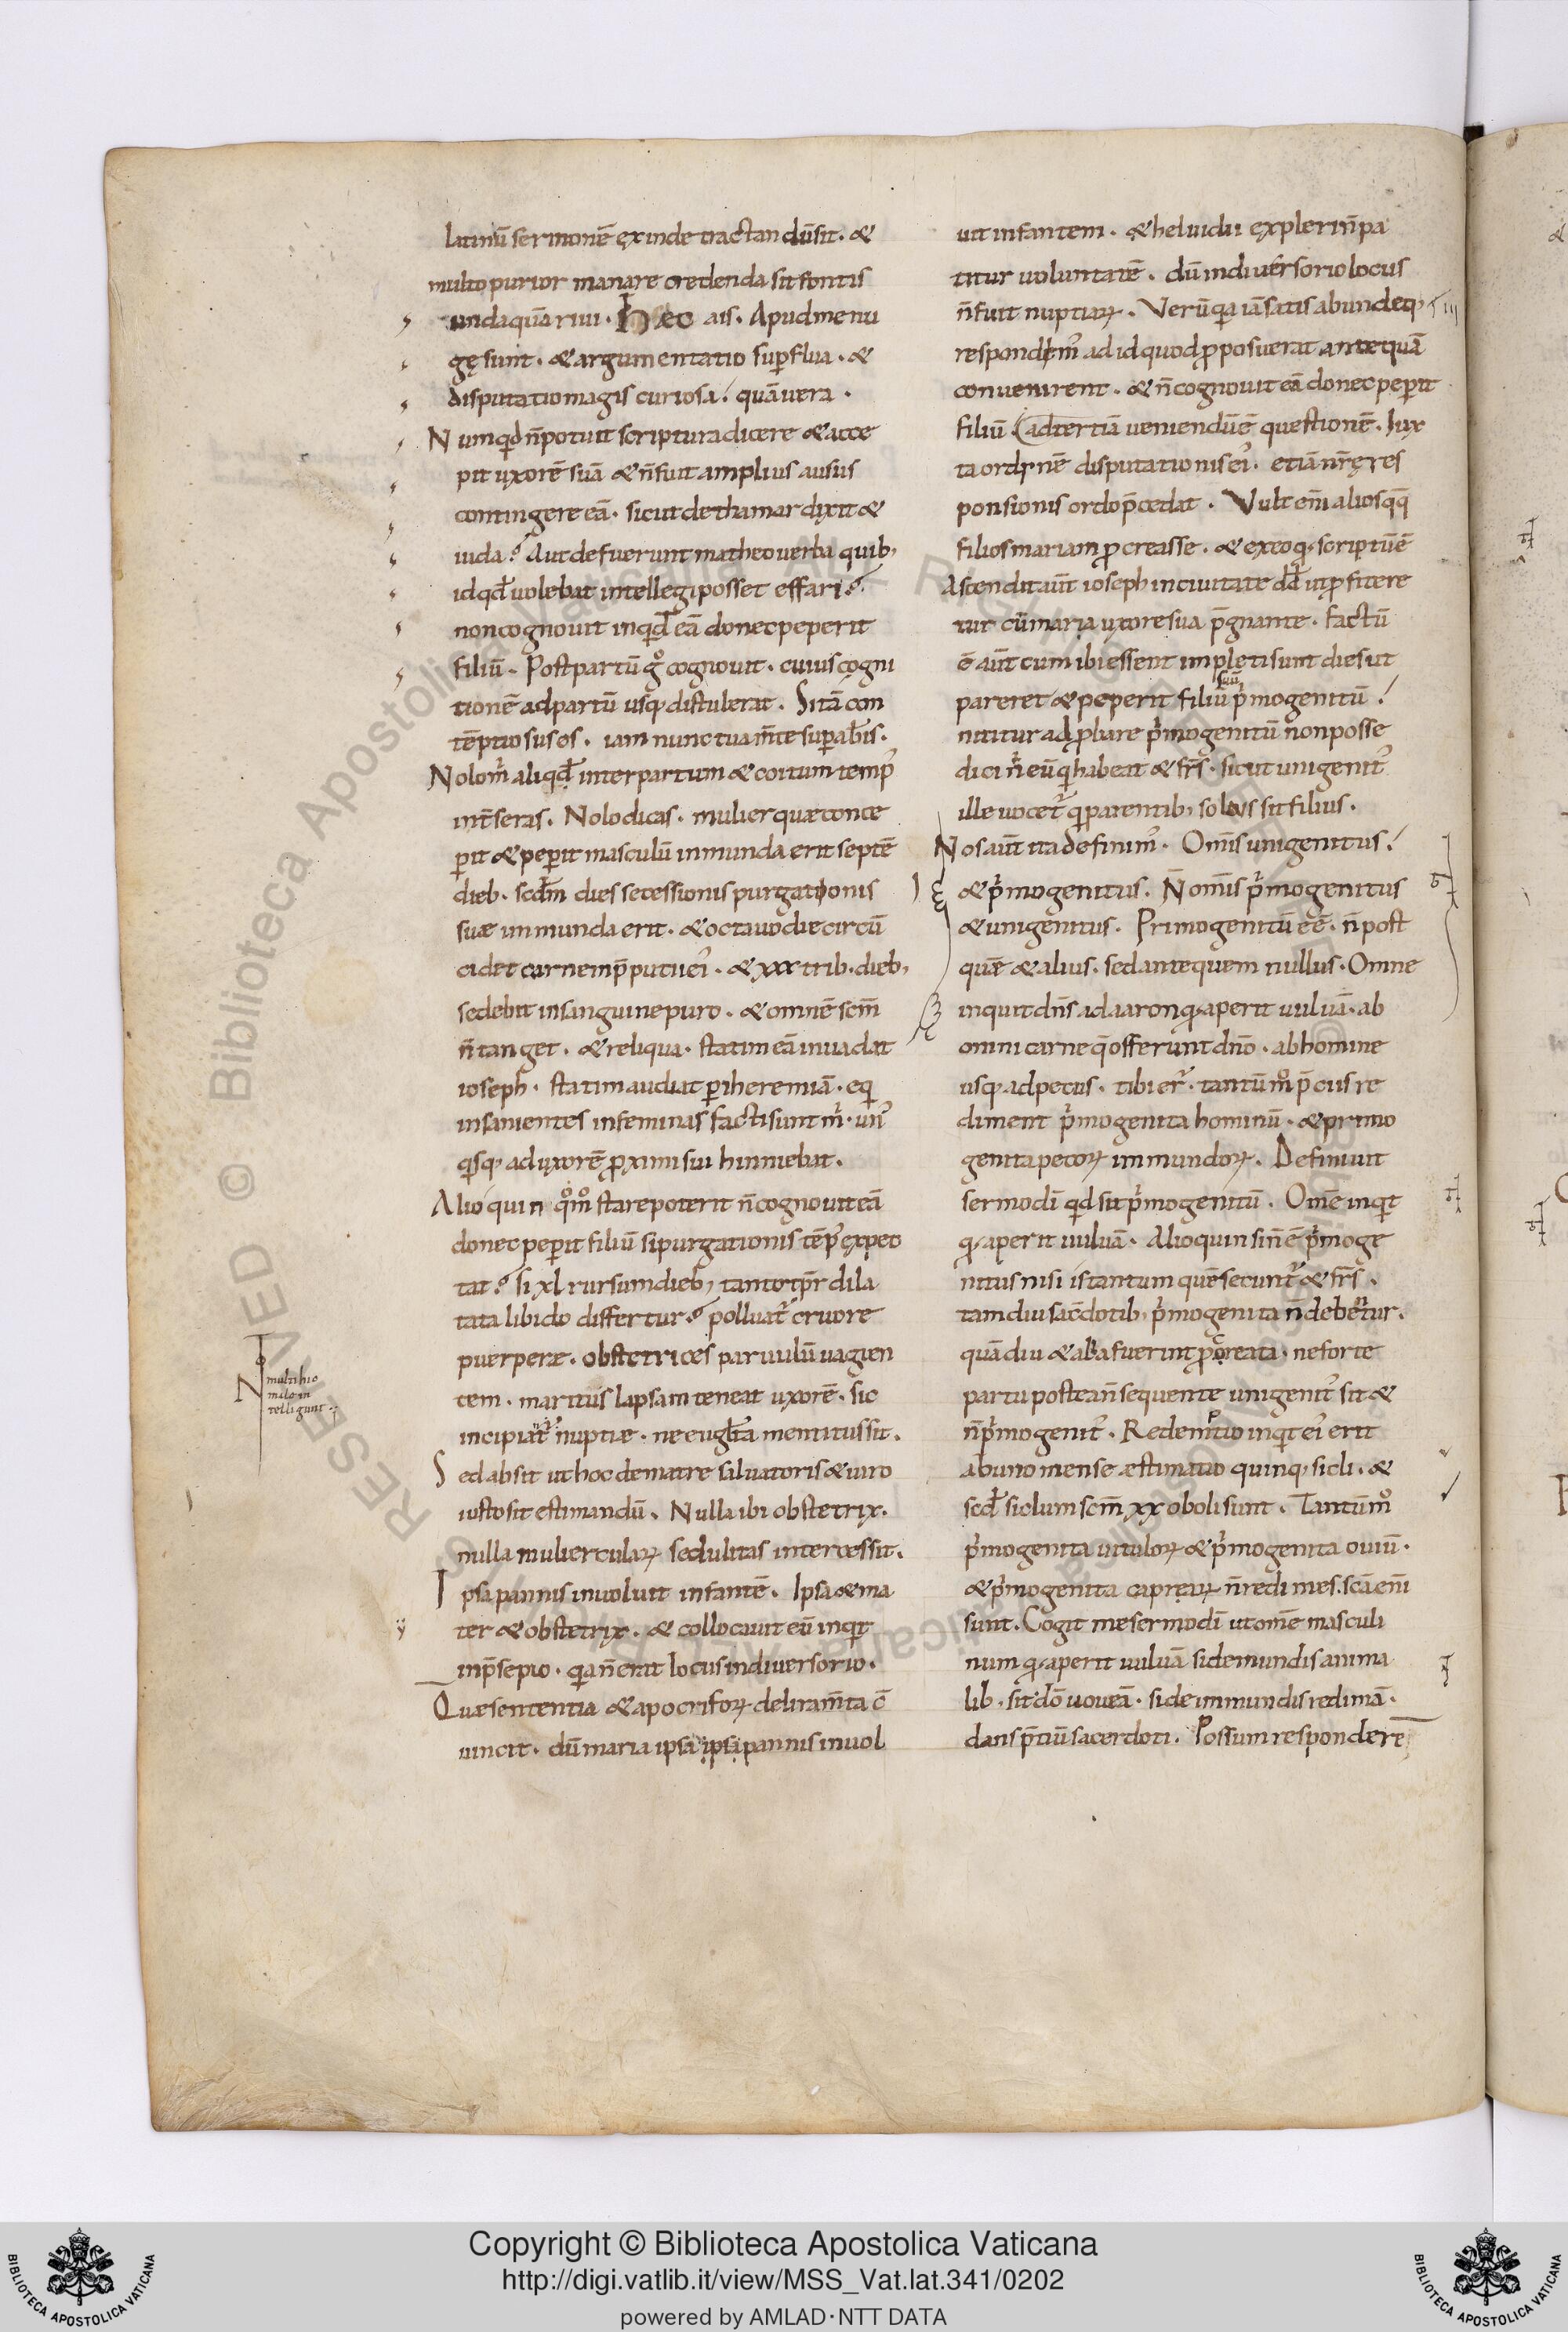 latinū sermonē exinde tractandū sit. &
multo purior manare credenda sit fontis
unda quā riui. Hęc ais. Apud me nu
gę sunt. & argumentatio supflua. &
disputatio magis curiosa! quā uera.
Numqd n̄ potuit scriptura dicere & acce
pit uxorē suā & n̄ fuit amplius ausus
contingere eā. sicut de thamar dixit &
iuda? Aut defuerunt matheo uerba quib;
id qđ uolebat intellegi posset effari?
non cognouit inqđ eā donec peperit
filiū. Post partū g° cognouit. cuius cogni
tionē ad partū usq; distulerat. Si tā con
tēptiosus es. iam nunc tua m̄te supabis.
Nolo m̓ aliqđ inter partum & coitum temp̓
int̄seras. Nolo dicas. mulier quæ conce
pit & peperit masculū inmunda erit septē
dieb. scđm dies secessionis purgationis
suæ inmunda erit. & octauo die circū
cidet carnem p̄putii ei̓. & xxx trib. dieb;
sedebit in sanguine puro. & omnē scm̄
n̄ tanget. & reliqua. statim eā inuadat
ioseph. statim audiat p iheremiā. eq
insanientes in feminas facti sunt m̓. un̓
qsq; ad uxorē proximi sui hinniebat.
Alioquin q°m° stare poterit n̄ cognouit eā
donec peperit filiū si purgationis tēp̓ expec
tat? si xl rursum dieb; tanto tp̄r dila
tata libido differtur? polluat̓ cruore
puerperæ. obstetrices paruulū uagien
tem. maritus lapsam teneat uxorē. sic
incipiat̓ nuptiæ. ne eugl̄ta mentitus sit.
Sed absit ut hoc de matre saluatoris & uiro
iusto sit estimandū. Nulla ibi obstetrix.
nulla muliercularꝝ sedulitas intercessit.
Ipsa pannis inuoluit infantē. Ipsa & ma
ter & obstetrix. & collocauit eū inqt
in p̄sepio. qa n̄ erat locus in diuersorio.
Quæ sententia & apocriforꝝ deliram̄ta c̄
uincit. dū maria ipsa ipsa pannis inuol
multi hic
male in
telligunt
uit infantem. & heluidii expleri n̄ pa
titur uoluntatē. dū in diuersorio locus
n̄ fuit nuptiarꝝ. Verū qa iā satis abundeq;
respondim̓ ad id quod proposuerat antequā
conuenirent. & n̄ cognouit eā donec peperit
filiū ad tertiā ueniendū ē questionē. Iux
ta ordinē disputationis ei̓. etiā nr̄ę res
ponsionis ordo p̄cedat. Vult eni̅ alios qq̄
filios mariam procreasse. & ex eo q; scriptū ē
Ascendit aūt ioseph in ciuitate dđ ut profitere
tur cū maria uxore sua p̄gnante. factū
ē aūt cum ibi essent impleti sunt dies ut
suū
pareret & peperit filiū p̓mogenitū!
nititur ad probare p̓mogenitū non posse
dici n̄ eū q habeat & frs̄. sicut unigenit̓
ille uocet̓ q parentib; solus sit filius.
Nos aūt ita definim̓. Omīs unigenitus!
& p̓mogenitus. N̄ omīs p̓mogenitus
& unigenitus. Primogenitū eē. n̄ post
quē & alius. sed ante quem nullus. Omne
inquit dn̄s ad aaron q; aperit uuluā. ab
omni carne q̄ offerunt dn̄o. ab homine
usq; ad pecus. tibi er̓. tantū m° p̄cus re
diment p̓mogenita hominū. & primo
genita pecorꝝ immundorꝝ. Definiuit
sermo dī qd sit p̓mogenitū. Om̄e inqt
q; aperit uuluā. Alioquin si n̄ ē p̓moge
nitus nisi is tantum quē secunt̓ & frs̄.
tamdiu sac̄dotib; p̓mogenita n̄ debentur.
quā diu & alia fuerint procreata. ne forte
partu postea n̄ sequente unigenit̓ sit &
n̄ p̓mogenit̓. Redemptio inqt ei̓ erit
ab uno mense æstimatio quinq; sicli. &
scđ siclum scm̄ xx oboli sunt. Tantū m°
p̓mogenita uitulorꝝ & p̓mogenita ouiū.
& p̓mogenita caprearꝝ n̄ redimes. scā eni̅
sunt. Cogit me sermo dī ut om̄e masculi
num q; aperit uuluā si de mundis anima
lib. sit dō uoueā. si de immundis redimā.
dans p̄tiū sacerdoti. Possum respondere
Copyright © Biblioteca Apostolica Vaticana
http://digi.vatlib.it/view/MSS_Vat.lat.341/0202
powered by AMLAD·NTT DATA
BIBLIOTECA APOSTOLICA VATICANA
BIBLIOTECA APOSTOLICA VATICANA